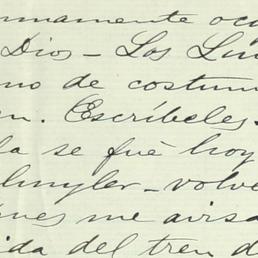 mamente ocu
Dios - Los Lun
no de costum
n. Escríbeles.
la se fué hoy
huyler - volve
nes me avisa
ida del tren d